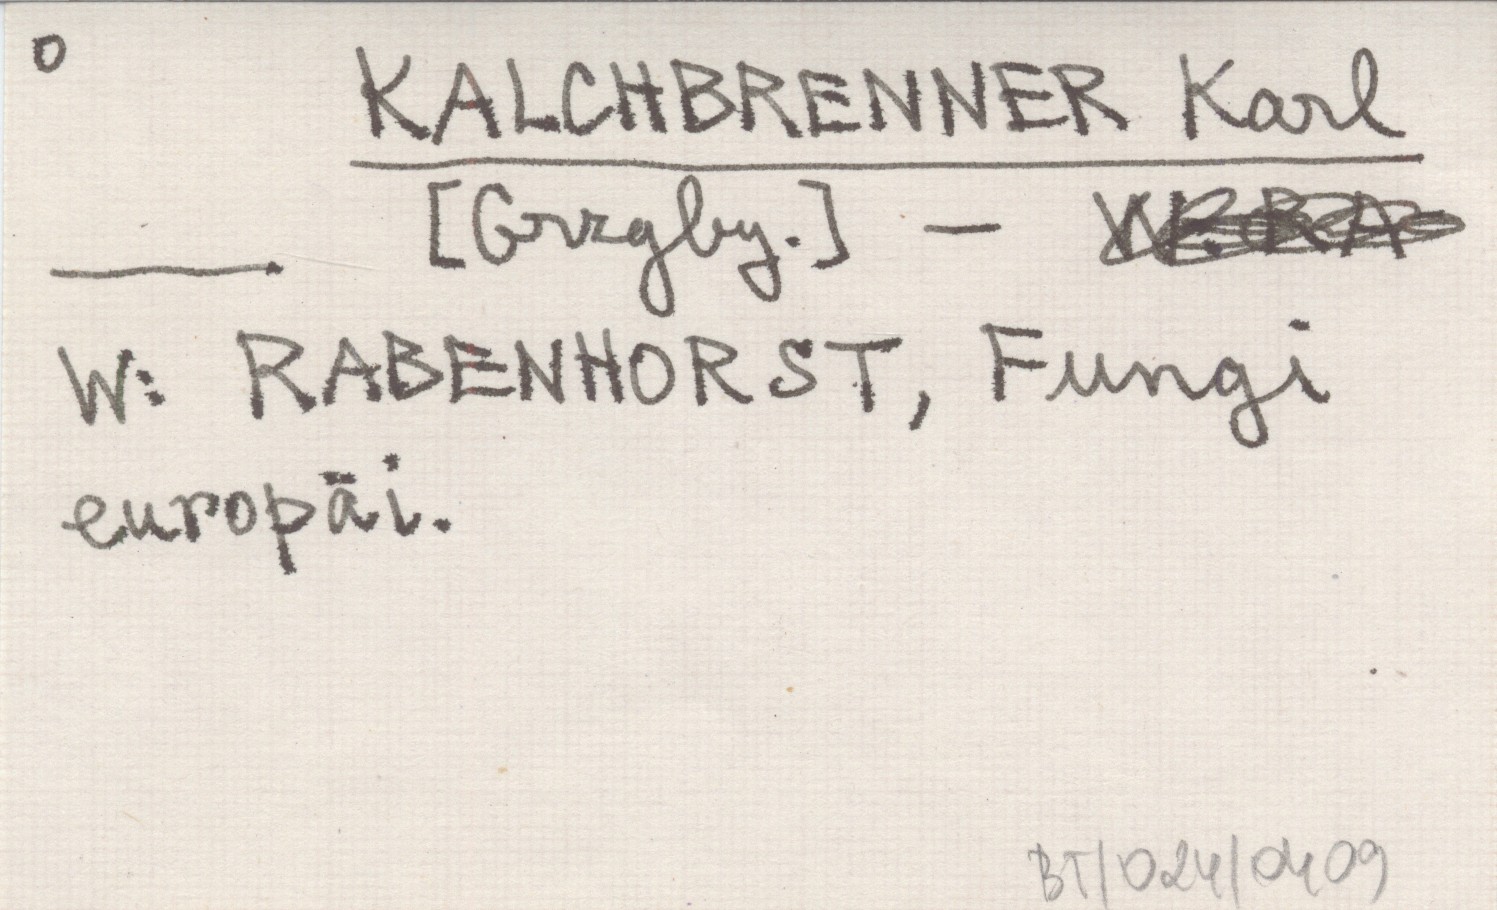 o
KALCHBRENNER Karl
[Grzyby.] –
W: RABENHORST, Fungi
europäi.
BT/024/0409